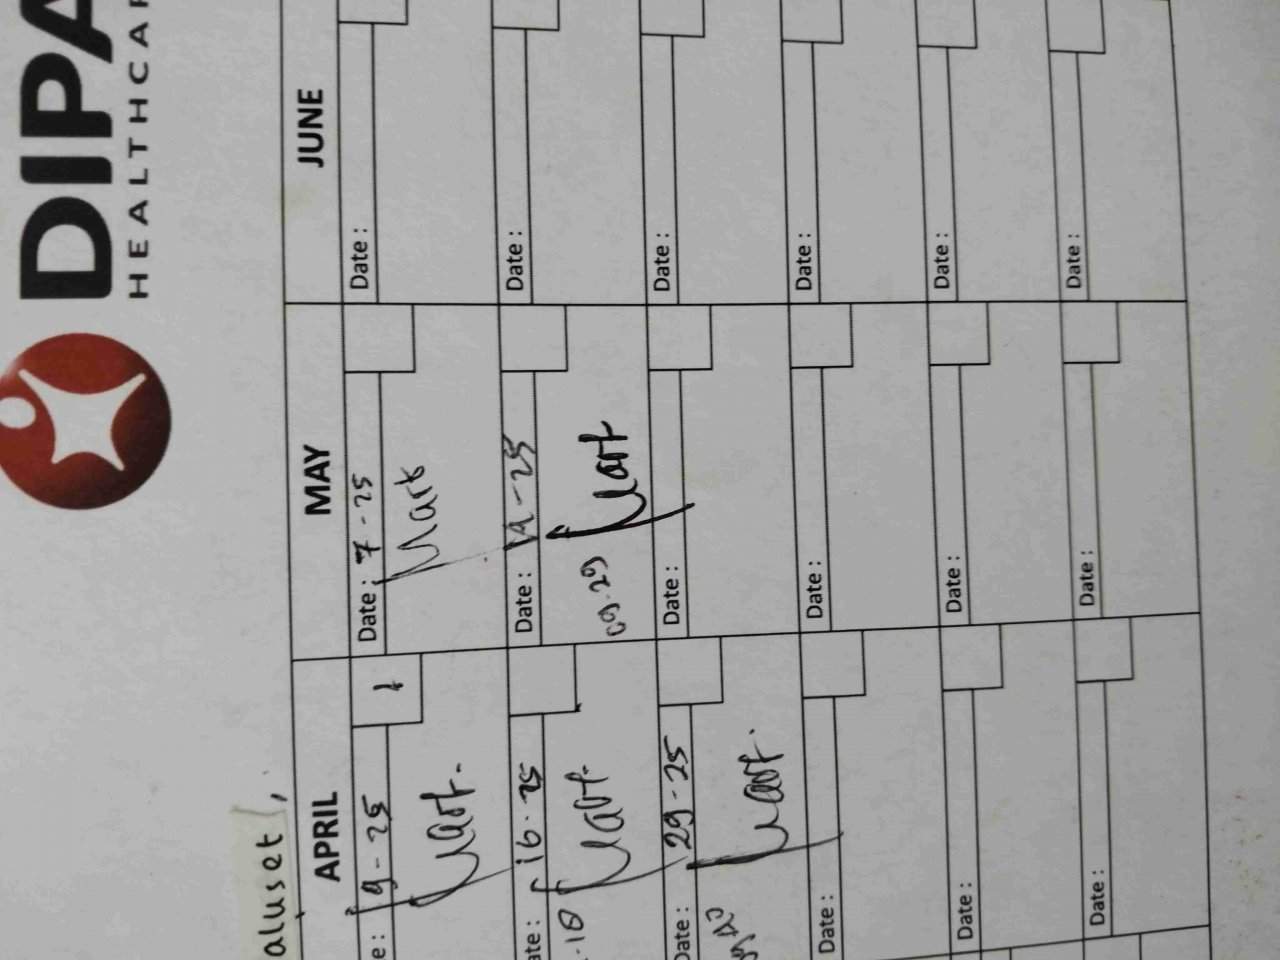 DIPA
HEALTHCAR
aluset
APRIL MAY JUNE
e : 9-25 1 Date : 7-25 Date :
Mark
ate : 16-25 Date : 14-25 Date :
.10 09.29
Date : 29-25 Date : Date :
Date : Date : Date :
Date : Date : Date :
Date : Date : Date :